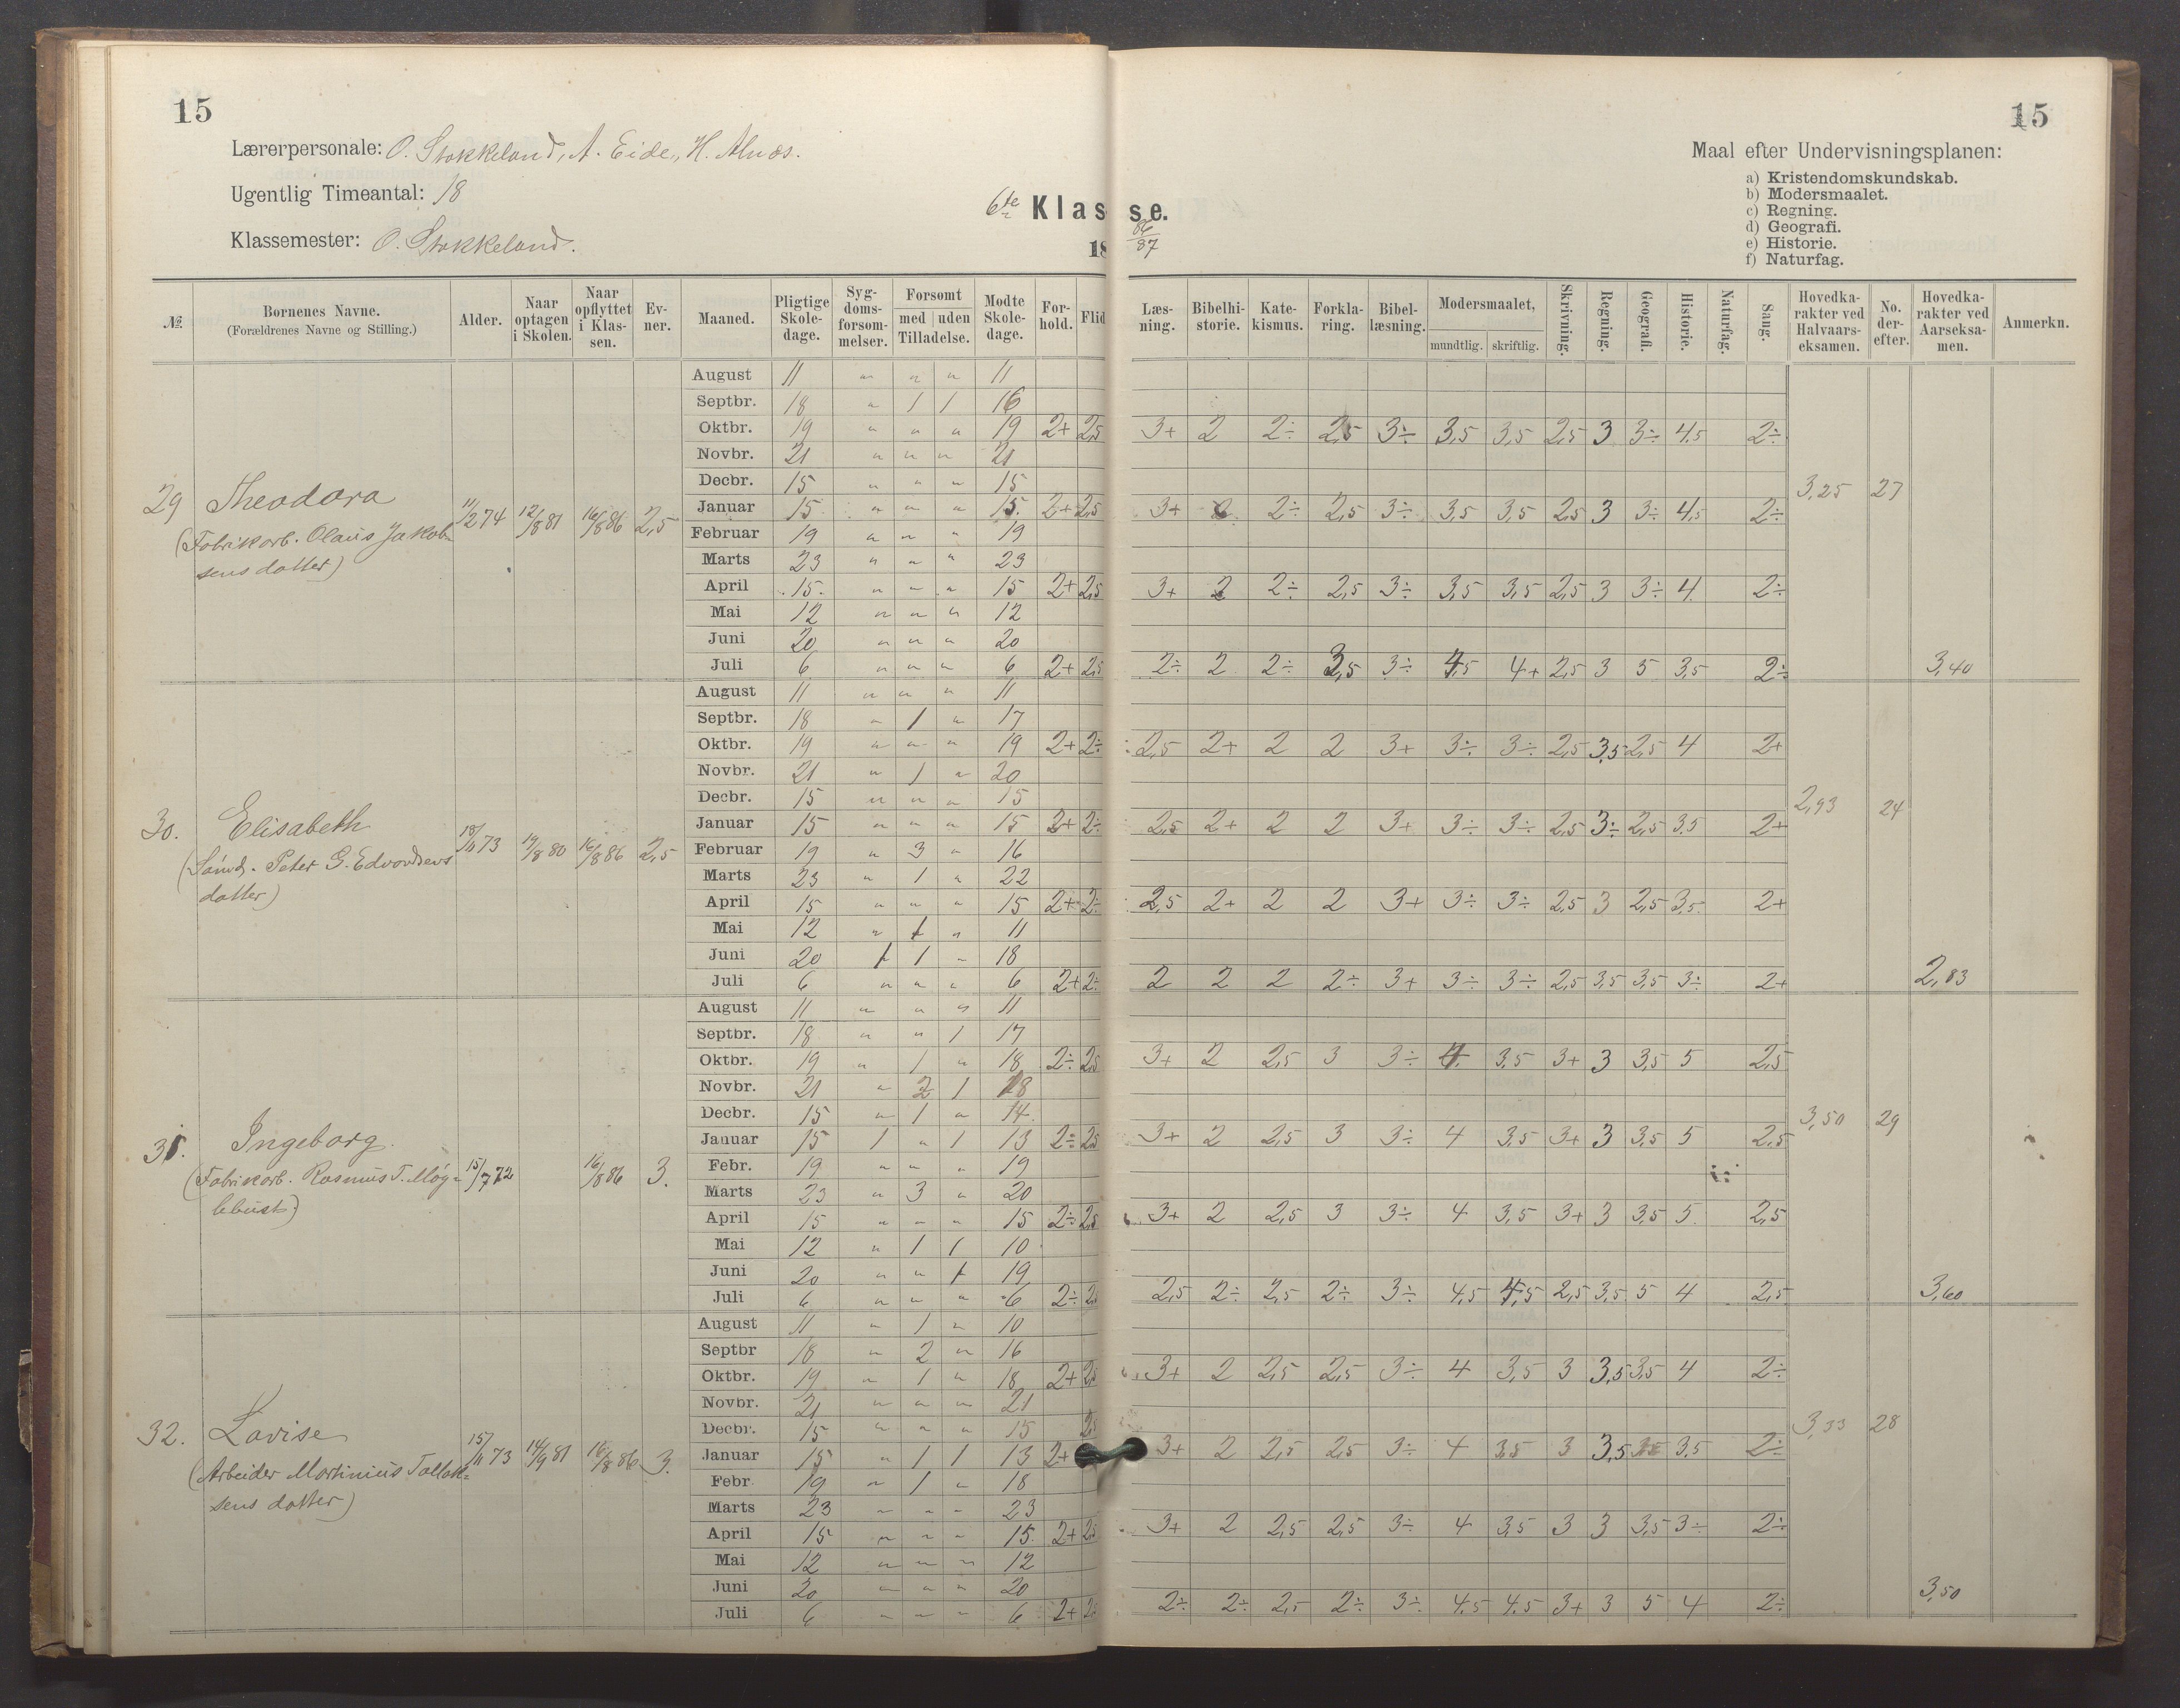 15
15
Lærerpersonale: O. Stokkeland, A. Eide, H. Alnæs.
Ugentlig Timeantal: 18
Klassemester: O. Stokkeland.
6te Klasse.
18 86/87
Maal efter Undervisningsplanen:
a) Kristendomskundskab.
b) Modersmaalet.
c) Regning.
d) Geografi.
e) Historie.
f) Naturfag.
№ Børnenes Navne. (Forældrenes Navne og Stilling.) Alder. Naar optagen i Skolen. Naar opflyttet i Klassen. Evner. Maaned. Pligtige Skoledage. Sygdomsforsømmelser. Forsømt med uden Tilladelse. Mødte Skoledage. Forhold. Flid Læsning. Bibelhistorie. Katekismus. Forklaring. Bibellæsning. Modersmaalet, mundtlig. skriftlig. Skrivning. Regning. Geografi. Historie. Naturfag. Sang. Hovedkarakter ved Halvaarseksamen. No. derefter. Hovedkarakter ved Aarseksamen. Anmerkn.
29 Theodora
(Fabrikarb. Olaus Jakobsens datter)
11/2 74 12/8 81 16/8 86 2,5
August 11 " " " 11
Septbr. 18 " 1 1 16
Oktbr. 19 " " " 19 2+ 2,5 3+ 2 2÷ 2,5 3÷ 3,5 3,5 2,5 3 3÷ 4,5 2÷
Novbr. 21 " " " 21
Decbr. 15 " " " 15
3,25 27
Januar 15 " " " 15 2+ 2,5 3+ 2 2÷ 2,5 3÷ 3,5 3,5 2,5 3 3÷ 4,5 2÷
Februar 19 " " " 19
Marts 23 " " " 23
April 15 " " " 15 2+ 2,5 3+ 2 2÷ 2,5 3÷ 3,5 3,5 2,5 3 3÷ 4 2÷
Mai 12 " " " 12
Juni 20 " " " 20
Juli 6 " " " 6 2+ 2,5 2÷ 2 2÷ 3,5 3÷ 4,5 4+ 2,5 3 5 3,5 2÷ 3,40
30. Elisabeth
Peter G. Edvardsens
datter)
73 19/8 80 16/8 86 2,5
August 11 " " " 11
Septbr. 18 " 1 " 17
Oktbr. 19 " " " 19 2+ 2÷ 2,5 2+ 2 2 3+ 3÷ 3÷ 2,5 3,5 2,5 4 2+
Novbr. 21 " 1 " 20
Decbr. 15 " " " 15
2,93 24
Januar 15 " " " 15 2+ 2÷ 2,5 2+ 2 2 3+ 3÷ 3÷ 2,5 3÷ 2,5 3,5 2+
Februar 19 " 3 " 16
Marts 23 " 1 " 22
April 15 " " " 15 2+ 2÷ 2,5 2+ 2 2 3+ 3÷ 3÷ 2,5 3 2,5 3,5 2+
Mai 12 " 1 " 11
Juni 20 1 1 " 18
Juli 6 " " " 6 2+ 2÷ 2 2 2 2÷ 3+ 3÷ 3÷ 2,5 3,5 3,5 3÷ 2+ 2,83
31. Ingeborg.
(Fabrikarb. Rasmus T. Møglebust)
15/7 72 16/8 86 3.
August 11 " " " 11
Septbr. 18 " " 1 17
Oktbr. 19 " 1 " 18 2÷ 2,5 3+ 2 2,5 3 3÷ 4 3,5 3+ 3 3,5 5 2,5
Novbr. 21 " 2 1 18
Decbr. 15 " 1 " 14
3,50 29
Januar 15 1 " 1 13 2÷ 2,5 3+ 2 2,5 3 3÷ 4 3,5 3+ 3 3,5 5 2,5
Febr. 19 " " " 19
Marts 23 " 3 " 20
April 15 " " " 15 2÷ 2,5 3+ 2 2,5 3 3÷ 4 3,5 3+ 3 3,5 5 2,5
Mai 12 " 1 1 10
Juni 20 " " 1 19
Juli 6 " " " 6 2÷ 2,5 2,5 2÷ 2,5 2÷ 3÷ 4,5 4,5 2,5 3,5 5 4 2,5 3,60
32. Lovise
(Arbeider Martinius Tollaksens datter)
15/11 73 14/9 81 16/8 86 3.
August 11 " 1 " 10
Septbr 18 " 2 " 16
Oktbr. 19 " 1 " 18 2+ 2,5 3+ 2 2,5 2,5 3÷ 4 3,5 3 3,5 3,5 4 2÷
Novbr. 21 " " " 21
Decbr. 15 " " " 15 2,5
3,33 28
Januar 15 " 1 1 13 2+ 3+ 2 2,5 2,5 3÷ 4 3,5 3 3,5 3,5 3,5 2÷
Febr. 19 " 1 " 18
Marts 23 " " " 23
April 15 " " " 15 2+ 2,5 3+ 2 2,5 2,5 3÷ 4 3,5 3 3 3,5 3÷ 2÷
Mai 12 " " " 12
Juni 20 " " " 20
Juli 6 " " " 6 2+ 2,5 2÷ 2÷ 2,5 2÷ 3÷ 4,5 4,5 3+ 3 5 4 2÷ 3,50